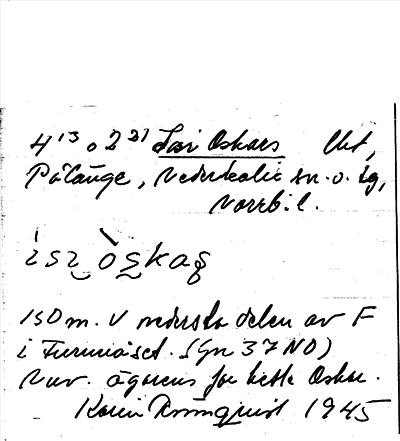 4¹³ o 2²¹ Isi Oskars lht,
Påläuge, Nederkalix sn. o. tg,
Norrb. l.
isi òskas
150 m. V nedersta delen av F
i Furunäset. (Gn 37 NO)
Nuv. ägarens far hette Oskar.
Karin Rönnquist 1945